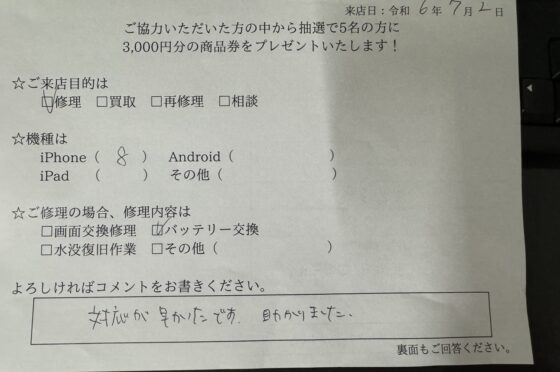 来店日：令和 6 年 7 月 2 日
ご協力いただいた方の中から抽選で5名の方に
3,000円分の商品券をプレゼントいたします！
☆ご来店目的は
☑修理 □買取 □再修理 □相談
☆機種は
iPhone（ 8 ） Android（ ）
iPad （ ） その他（ ）
☆ご修理の場合、修理内容は
□画面交換修理 ☑バッテリー交換
□水没復旧作業 □その他（ ）
よろしければコメントをお書きください。
対応が早かったです。助かりました。
裏面もご回答ください。